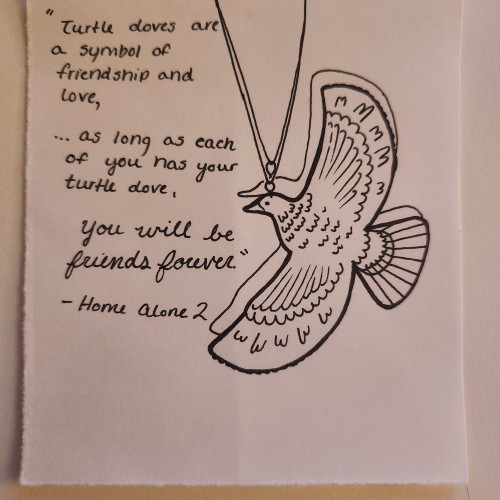 "Turtle doves are
a symbol of
friendship and
love,
... as long as each
of you has your
turtle dove,
you will be
friends forever."
- Home Alone 2